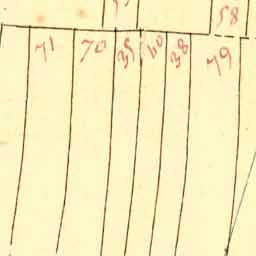 58
71 70 35 40 38 79